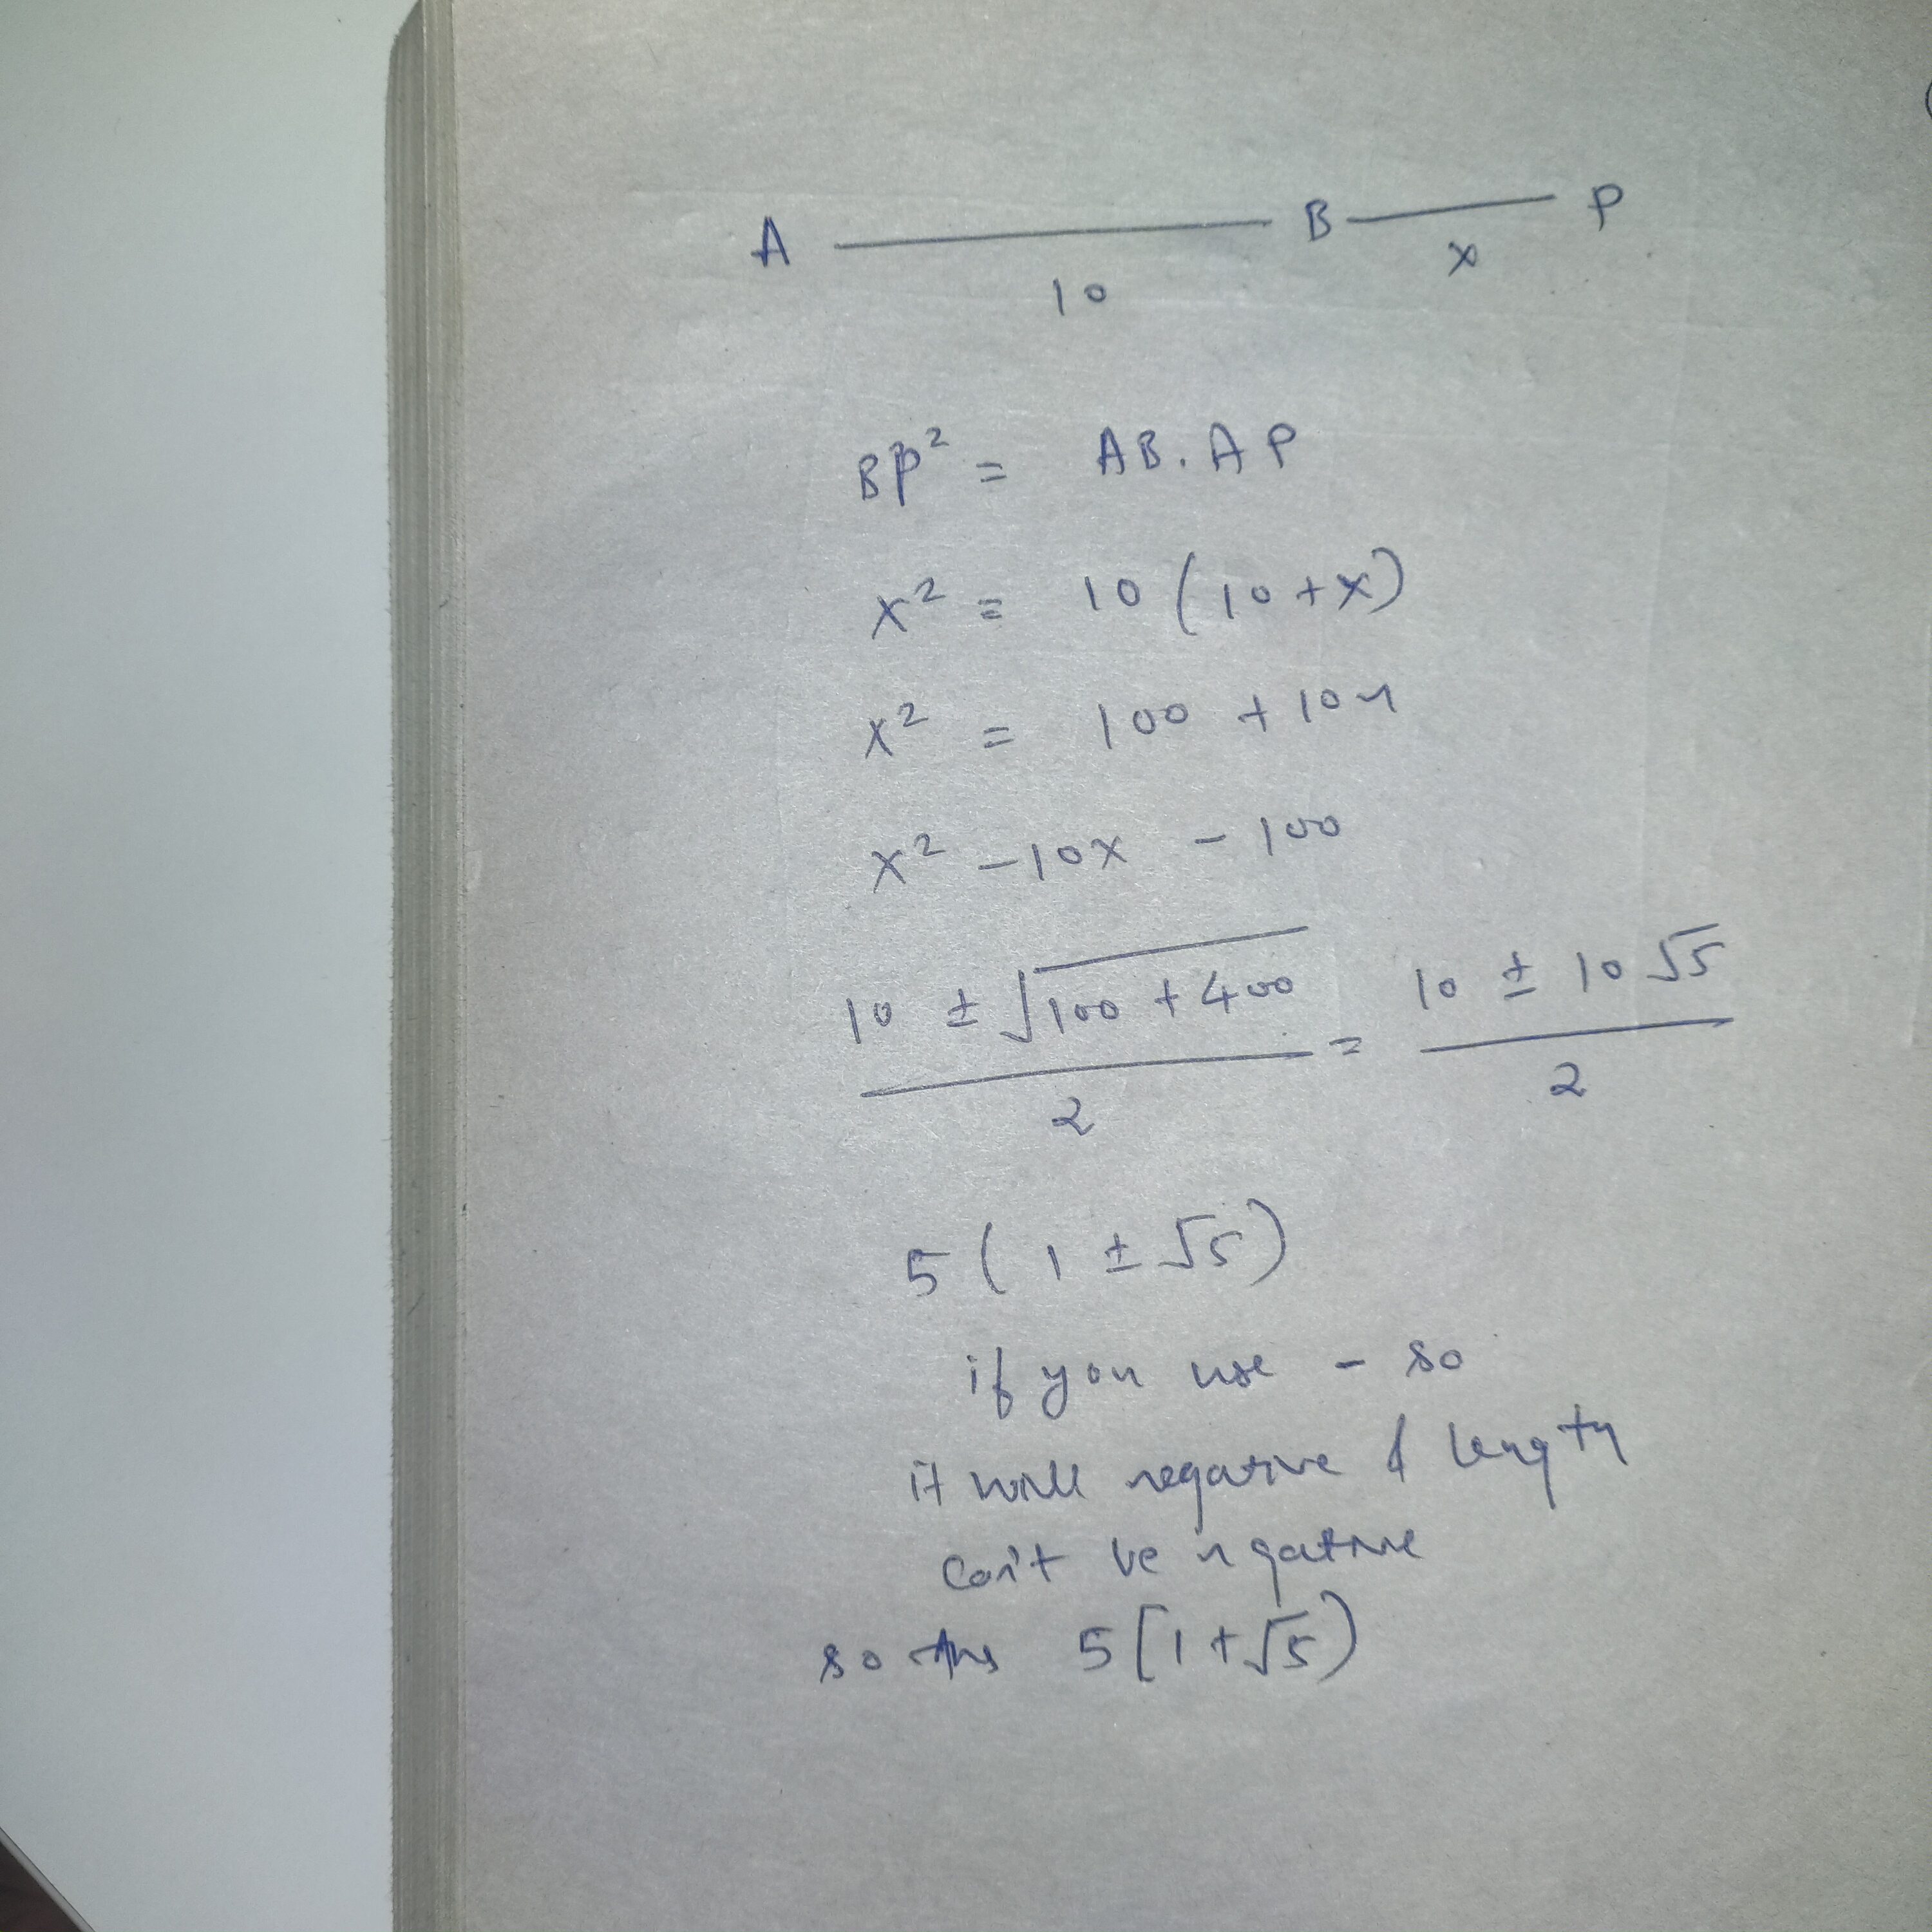 A B P
10 x
BP² = AB.AP
x² = 10(10+x)
x² = 100 + 10x
x² -10x - 100
10 ± √100 + 400 / 2 = 10 ± 10√5 / 2
5(1 ± √5)
if you use - so
it will negative & length
can't be ngative
so Ans 5[1+√5)